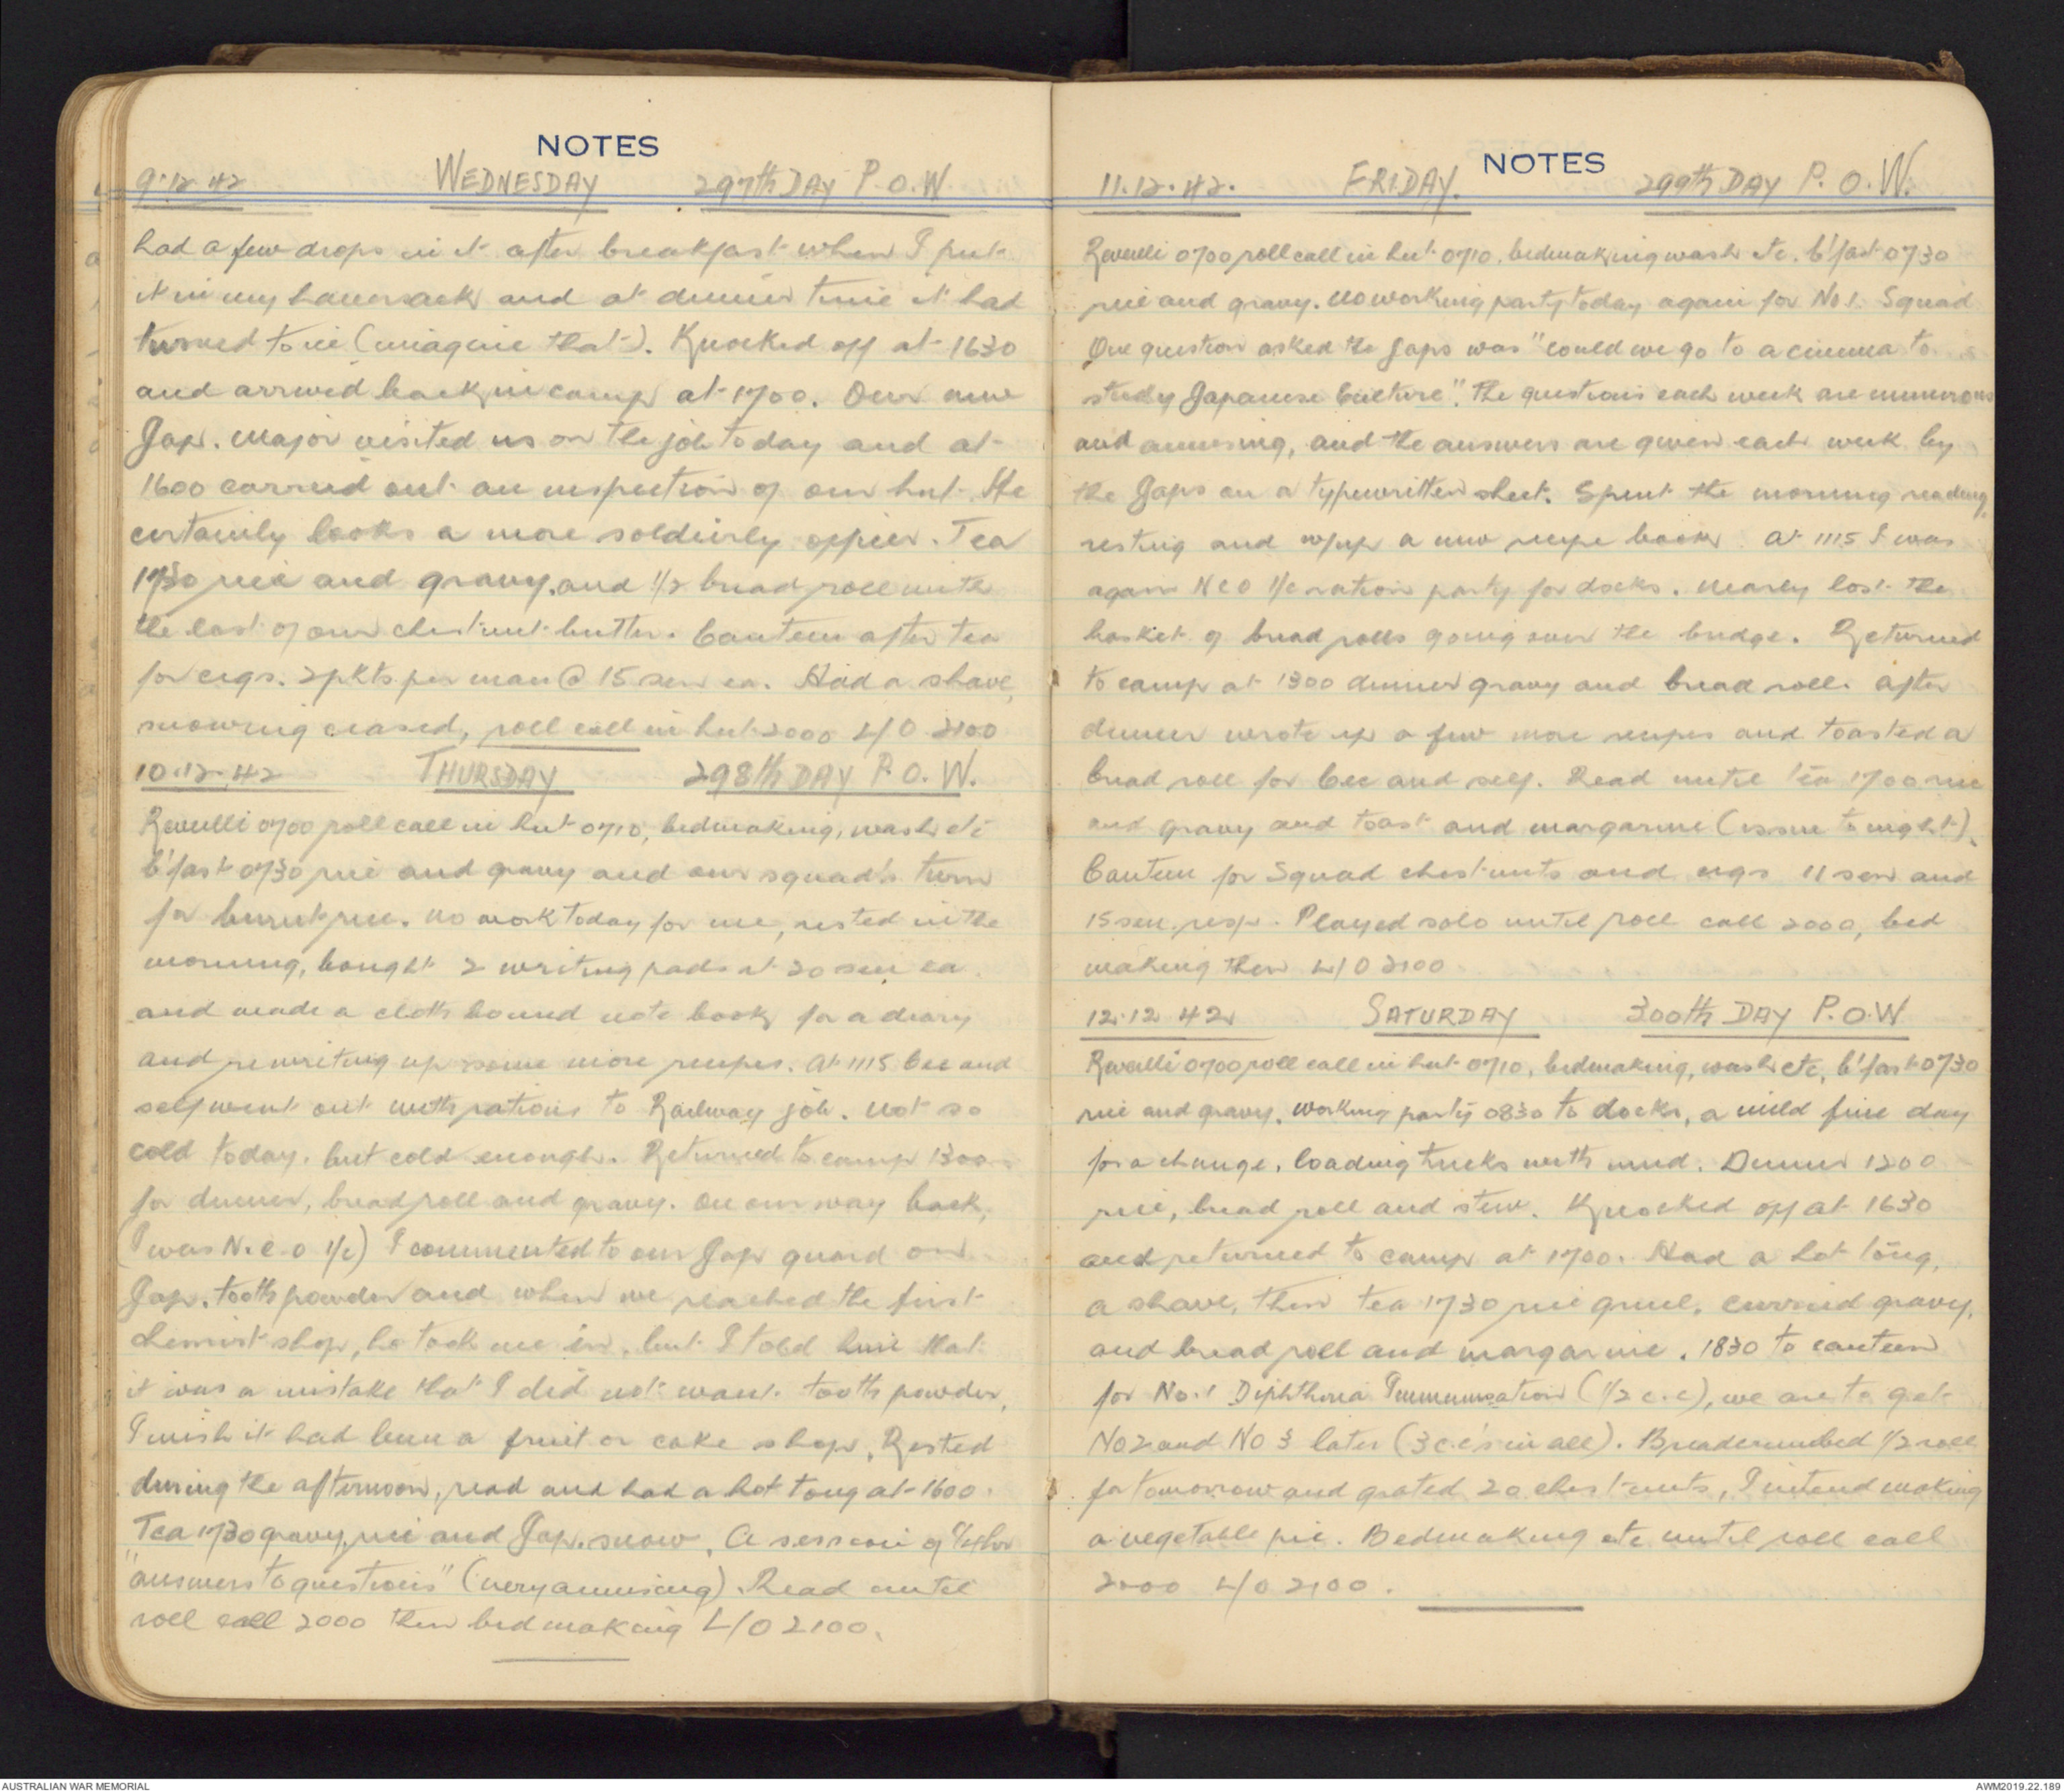 NOTES
9.12.42 WEDNESDAY 297th DAY P.O.W
had a few drops in it after breakfast when I put
it in my haversack and at dinner time it had
turned to ice (imagine that). Knocked off at 1630
and arrived back in camp at 1700. Our new
Jap. Major visited us on the job today and at
1600 carried out an inspection of our hut. He
certainly looks a more soldierly officer. Tea
1730 rice and gravy, and 1/2 bread roll with
the last of our chestnut butter. Canteen after tea
for cigs. 2 pkts per man @ 15 sen ea. Had a shave,
snowing ceased, roll call in hut 2000 L/O 2100
10.12.42 THURSDAY 298th DAY P.O.W.
Reveilli 0700 roll call in hut 0710, bedmaking, wash etc
b'fast 0730 rice and gravy and our squad's turn
for burnt rice. No work today for me, rested in the
morning, bought 2 writing pads at 20 sen ea.
and made a cloth bound note book for a diary
and rewriting up some more recipes. At 1115 Cec and
self went out with rations to Railway job. Not so
cold today, but cold enough. Returned to camp 1300
for dinner, bread roll and gravy. On our way back,
(I was N.C.O i/c) I commented to our Jap guard on
Jap. tooth powder and when we reached the first
chemist shop, he took me in, but I told him that
it was a mistake that I did not want tooth powder,
I wish it had been a fruit or cake shop. Rested
during the afternoon, read and had a hot tong at 1600.
Tea 1730 gravy, rice and Jap. snow. A session of
"answers to questions" (very amusing). Read until
roll call 2000 then bed making L/O 2100.
NOTES
11.12.42. FRIDAY. 299th DAY P.O.W.
Reveilli 0700 roll call in hut 0710, bedmaking wash etc, b'fast 0730
rice and gravy. No working party today again for No 1. Squad
One question asked the Japs was "could we go to a cinema to
study Japanese Culture". The questions each week are numerous
and amusing, and the answers are given each week by
the Japs on a typewritten sheet. Spent the morning reading,
resting and w/up a new recipe book. At 1115 I was
again NCO i/c ration party for docks. Nearly lost the
basket of bread rolls going over the bridge. Returned
to camp at 1300 dinner gravy and bread roll. After
dinner wrote up a few more recipes and toasted a
bread roll for Cec and self. Read until tea 1700 rice
and gravy and toast and margarine (issue tonight).
Canteen for Squad chestnuts and cigs 11 sen and
15 sen resp. Played solo until roll call 2000, bed
making then L/O 2100
12.12 42 SATURDAY 300th DAY P.O.W
Reveilli 0700 roll call in hut 0710, bedmaking, wash etc, b'fast 0730
rice and gravy. Working party 0830 to docks, a mild fine day
for a change, loading trucks with mud. Dinner 1200
rice, bread roll and stew. Knocked off at 1630
and returned to camp at 1700. Had a hot tong,
a shave, then tea 1730 rice gruel, curried gravy,
and bread roll and margarine. 1830 to canteen
for No.1 Diphtheria Immunisation (1/2 c.c), we are to get
No 2 and No 3 later (3 c.c's in all). Breadcrumbed 1/2 roll
for tomorrow and grated 20 chestnuts, I intend making
a vegetable pie. Bedmaking etc until roll call
2000 L/O 2100.
AUSTRALIAN WAR MEMORIAL
AWM2019.22.189